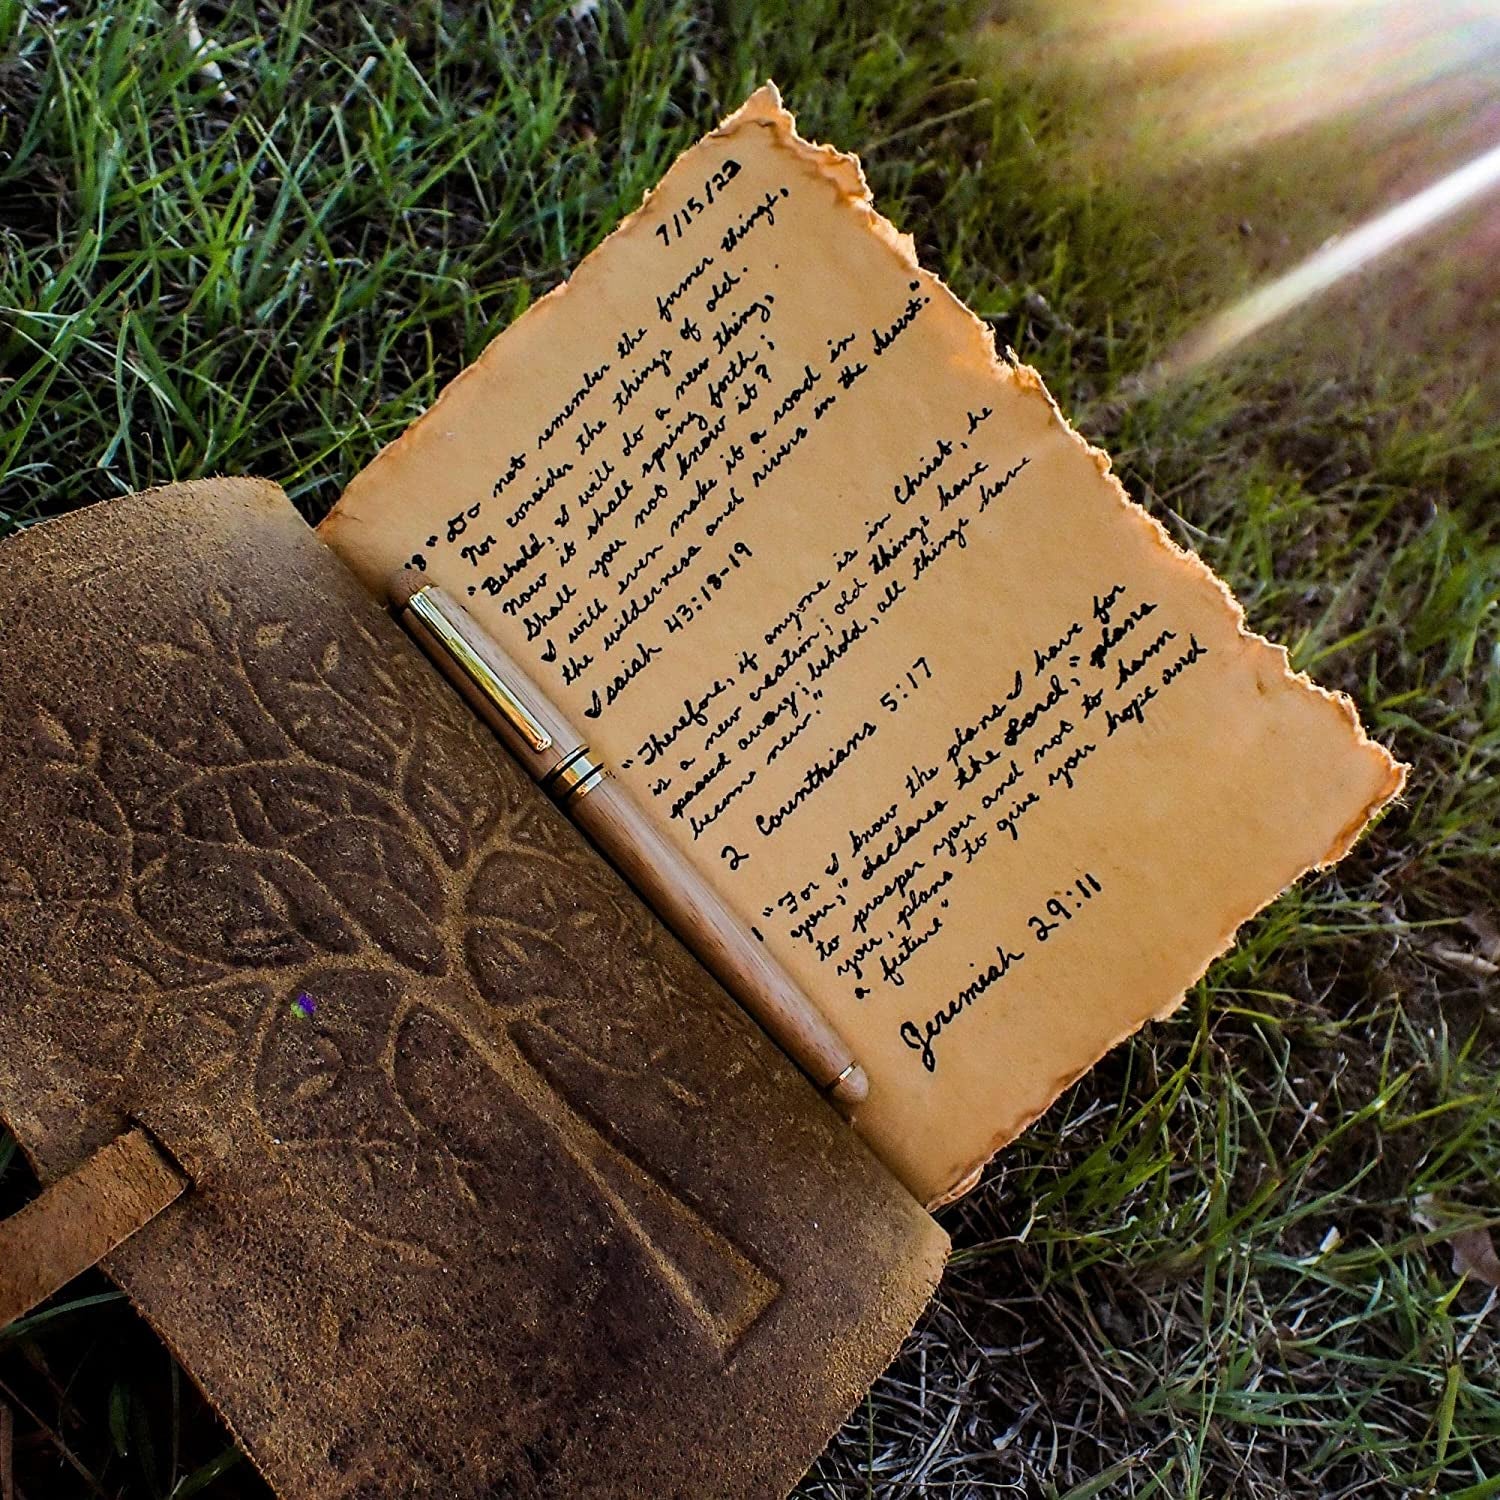 7/15/23
18 "Do not remember the former things,
Nor consider the things of old.
"Behold, I will do a new thing,
Now it shall spring forth;
Shall you not know it?
I will even make it a road in
the wilderness and rivers in the desert."
Isaiah 43:18-19
"Therefore, if anyone is in Christ, he
is a new creation; old things have
passed away; behold, all things have
become new."
2 Corinthians 5:17
"For I know the plans I have for
you," declares the Lord," plans
to prosper you and not to harm
you, plans to give you hope and
a future"
Jeremiah 29:11